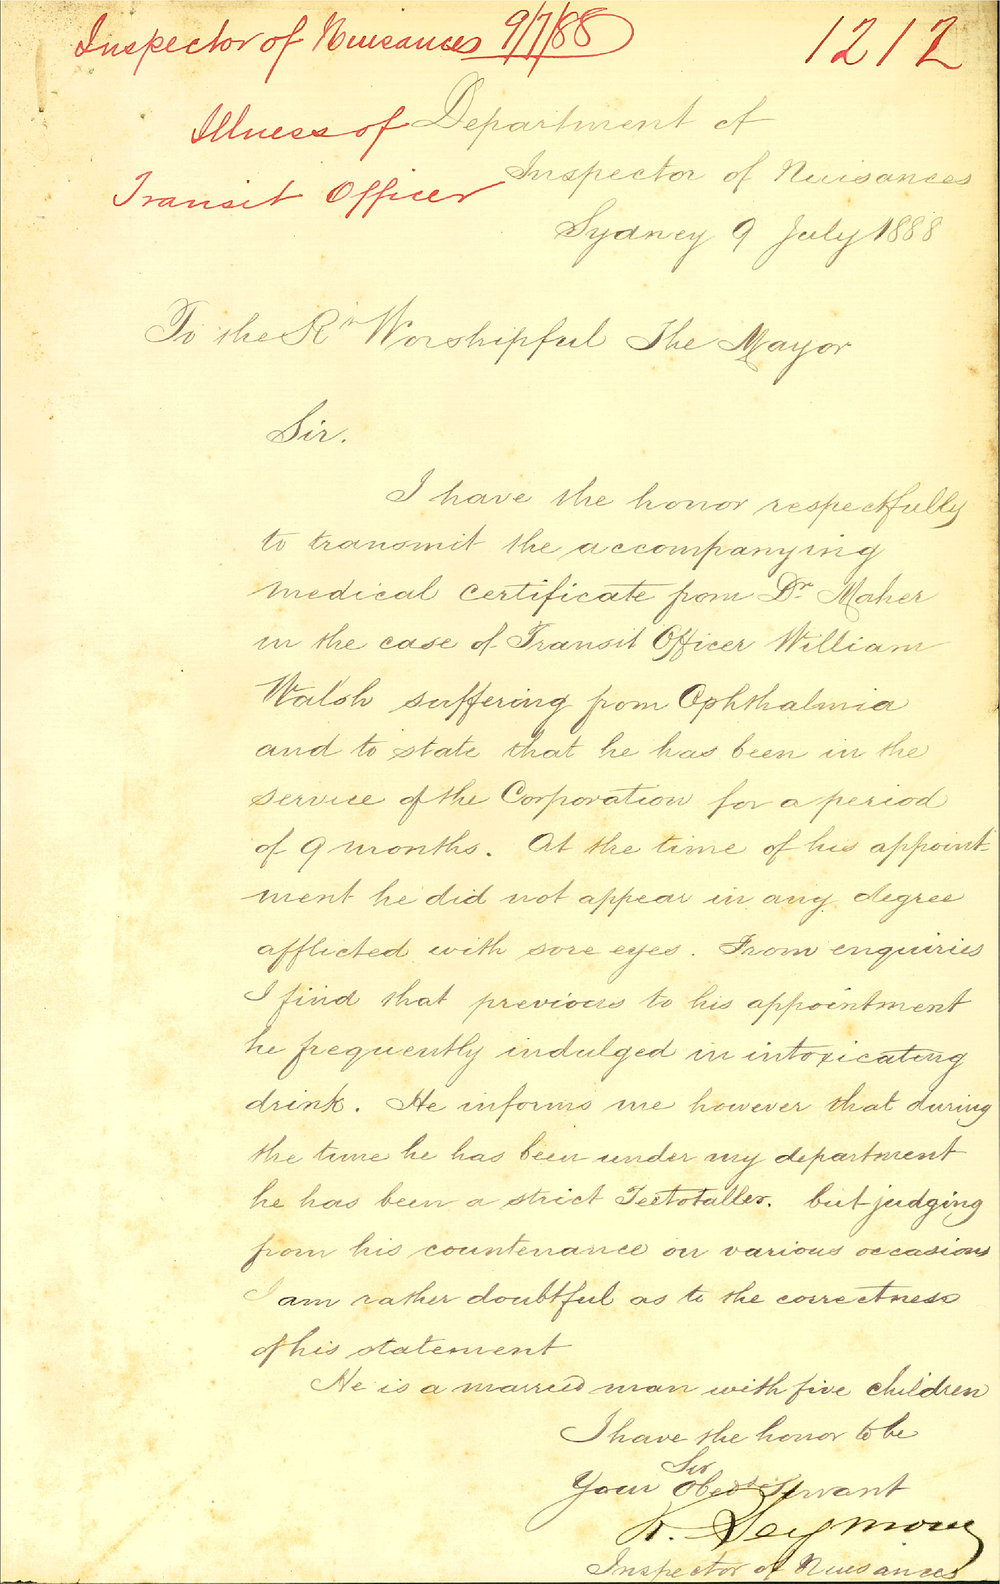 Inspector of Nuisances 9/7/88
1212
Illness of
Transit Officer
Department of
Inspector of Nuisances
Sydney 9 July 1888
To the Rt Worshipful The Mayor
Sir.
I have the honor respectfully
to transmit the accompanying
medical certificate from Dr Maher
in the case of Transit Officer William
Walsh suffering from Ophthalmia
and to state that he has been in the
service of the Corporation for a period
of 9 months. At the time of his appoint-
ment he did not appear in any degree
afflicted with sore eyes. From enquiries
I find that previous to his appointment
he frequently indulged in intoxicating
drink. He informs me however that during
the time he has been under my department
he has been a strict Teetotaller. but judging
from his countenance on various occasions
I am rather doubtful as to the correctness
of his statement
He is a married man with five children
I have the honor to be
Sir
Your Obedt Servant
R. Seymour
Inspector of Nuisances